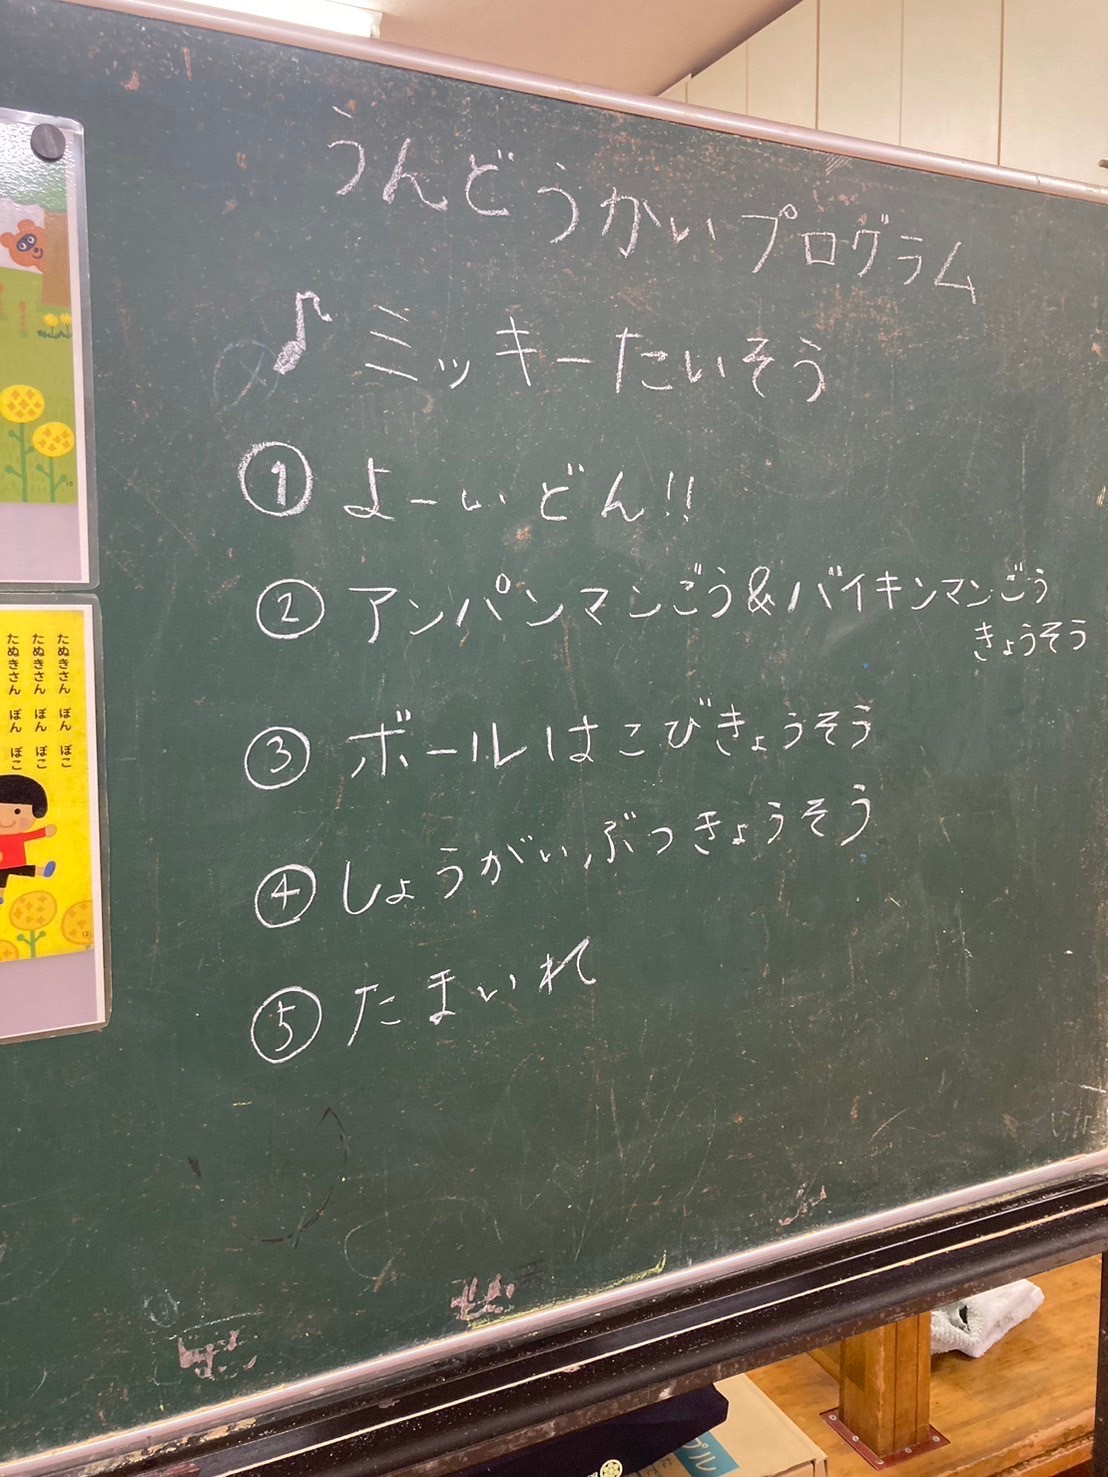 うんどうかいプログラム
♪ ミッキーたいそう
① よーいどん!!
② アンパンマンごう&バイキンマンごう
きょうそう
③ ボールはこびきょうそう
④ しょうがいぶつきょうそう
⑤ たまいれ
たぬきさん ぽん ぽこ
たぬきさん ぽん ぽこ
たぬきさん ぽん ぽこ